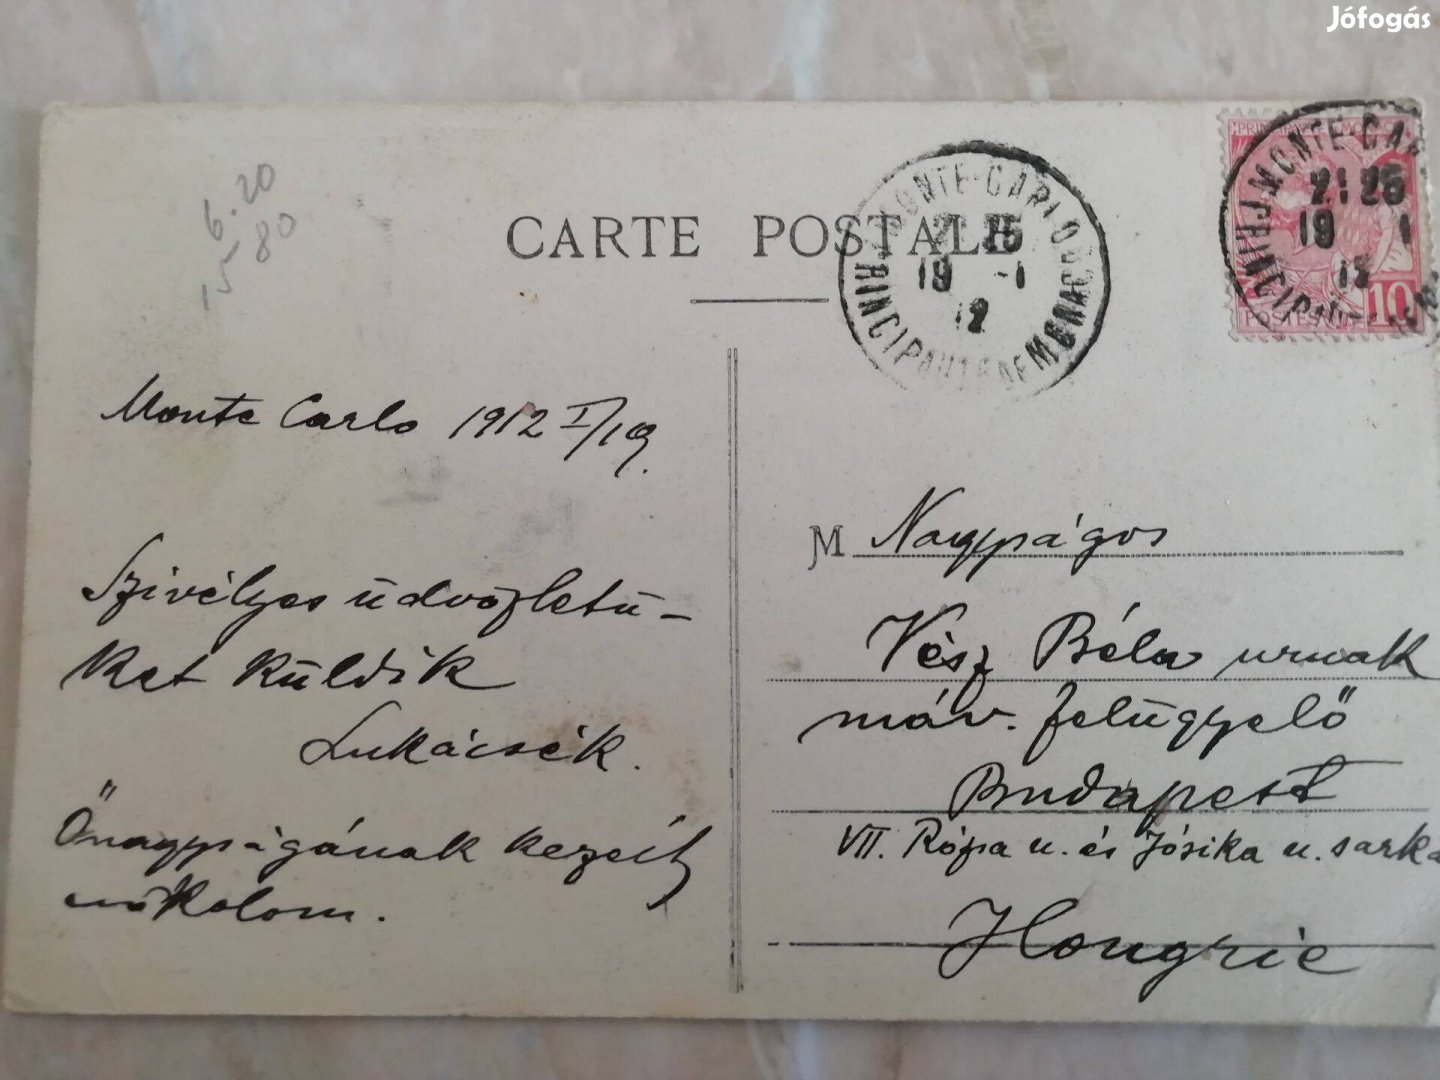 Jófogás
6.20
15 80
CARTE POSTALE
MONTE-CARLO
21 25
19 -1
12
PRINCIPAUTÉ DE MONACO
MONTE-CAR
21 25
19 1
12
PRINCIPAU
POSTES
10
Monte Carlo 1912 I/19.
Szivélyes üdvözletü-
ket küldik
Lukácsék.
Őnagyságának kezeit
csókolom.
M Nagyságos
Vész Béla urnak
máv. felügyelő
Budapest
VII. Rózsa u. és Jósika u. sarka
Hongrie